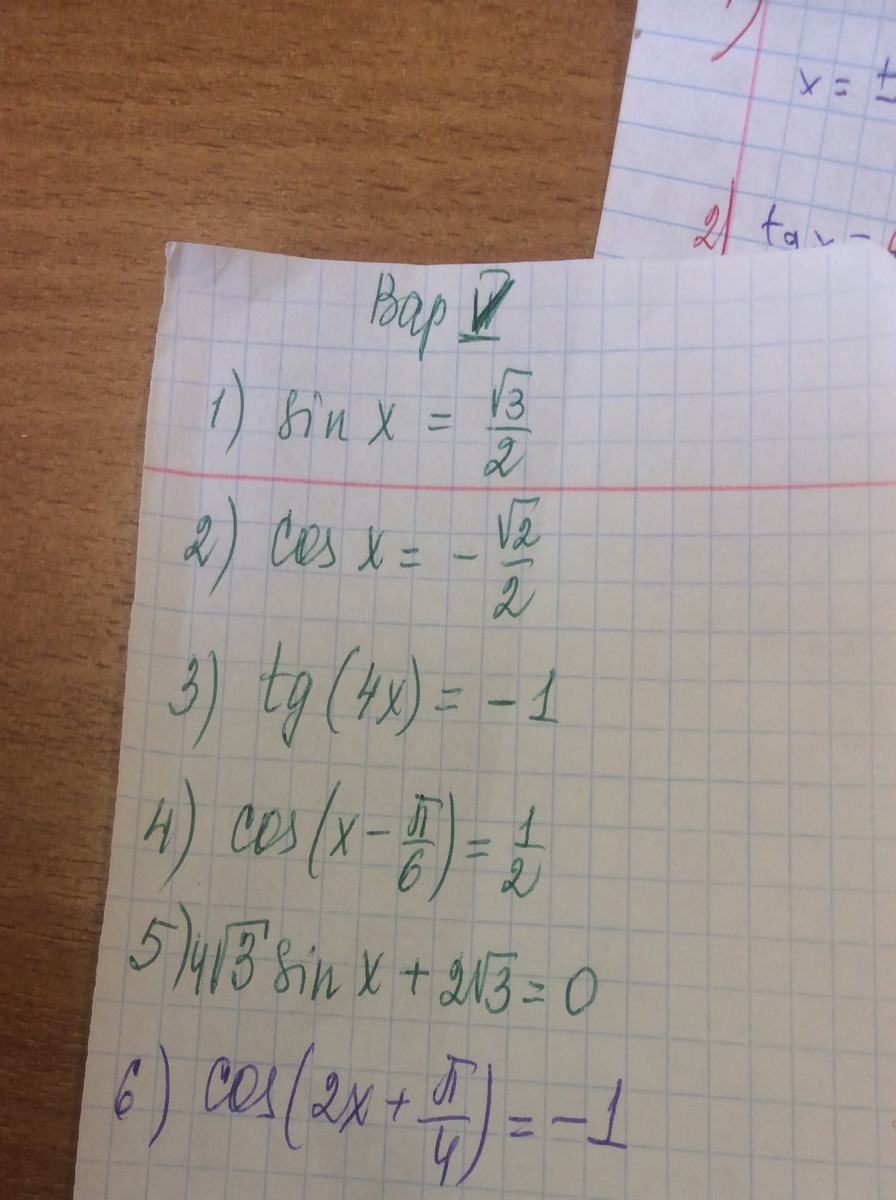 x = ±
2) tg x =
Вар V
1) sin x = √3/2
2) cos x = -√2/2
3) tg(4x) = -1
4) cos(x - π/6) = 1/2
5) 4√3 sin x + 2√3 = 0
6) cos(2x + π/4) = -1